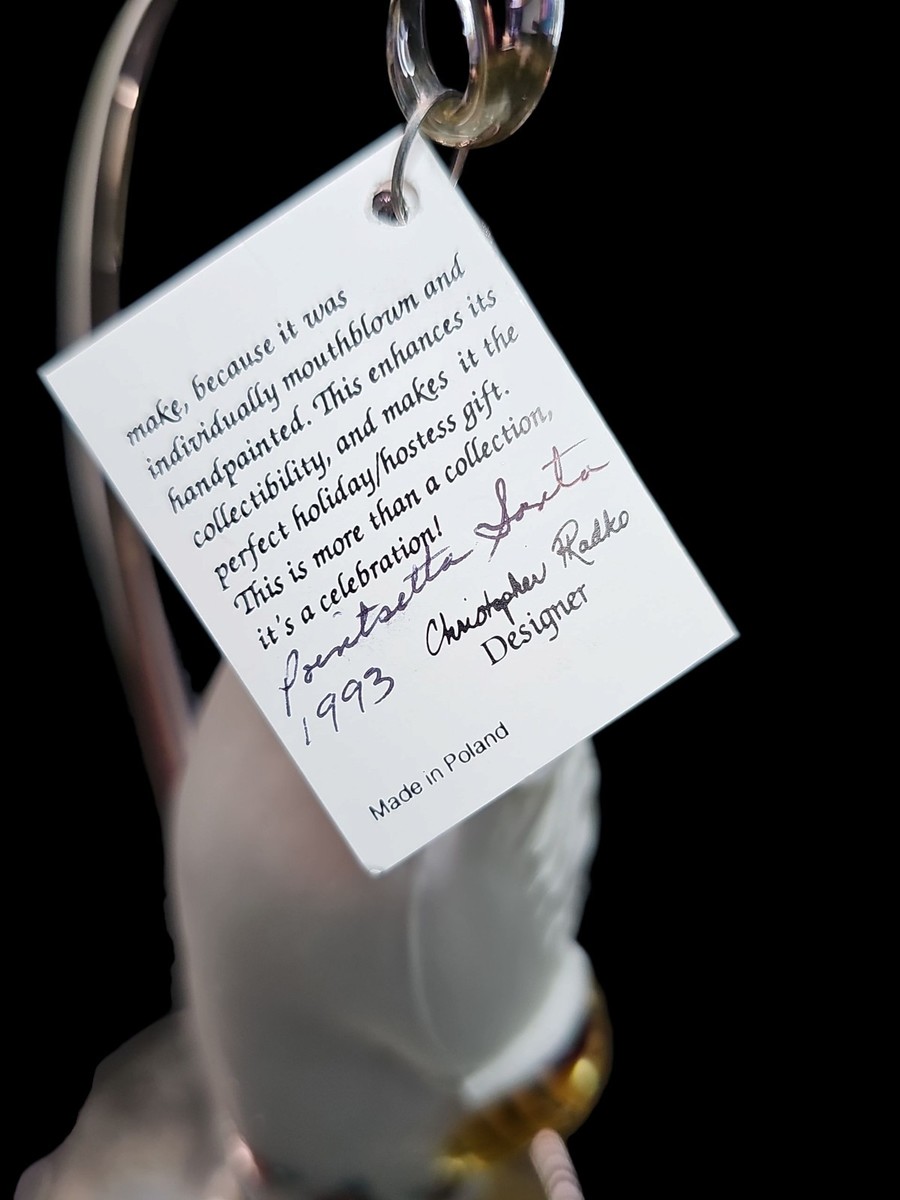 make, because it was
individually mouthblown and
handpainted. This enhances its
collectibility, and makes it the
perfect holiday/hostess gift.
This is more than a collection,
it's a celebration!
Pointsetta Santa
1993
Christopher Radko
Designer
Made in Poland